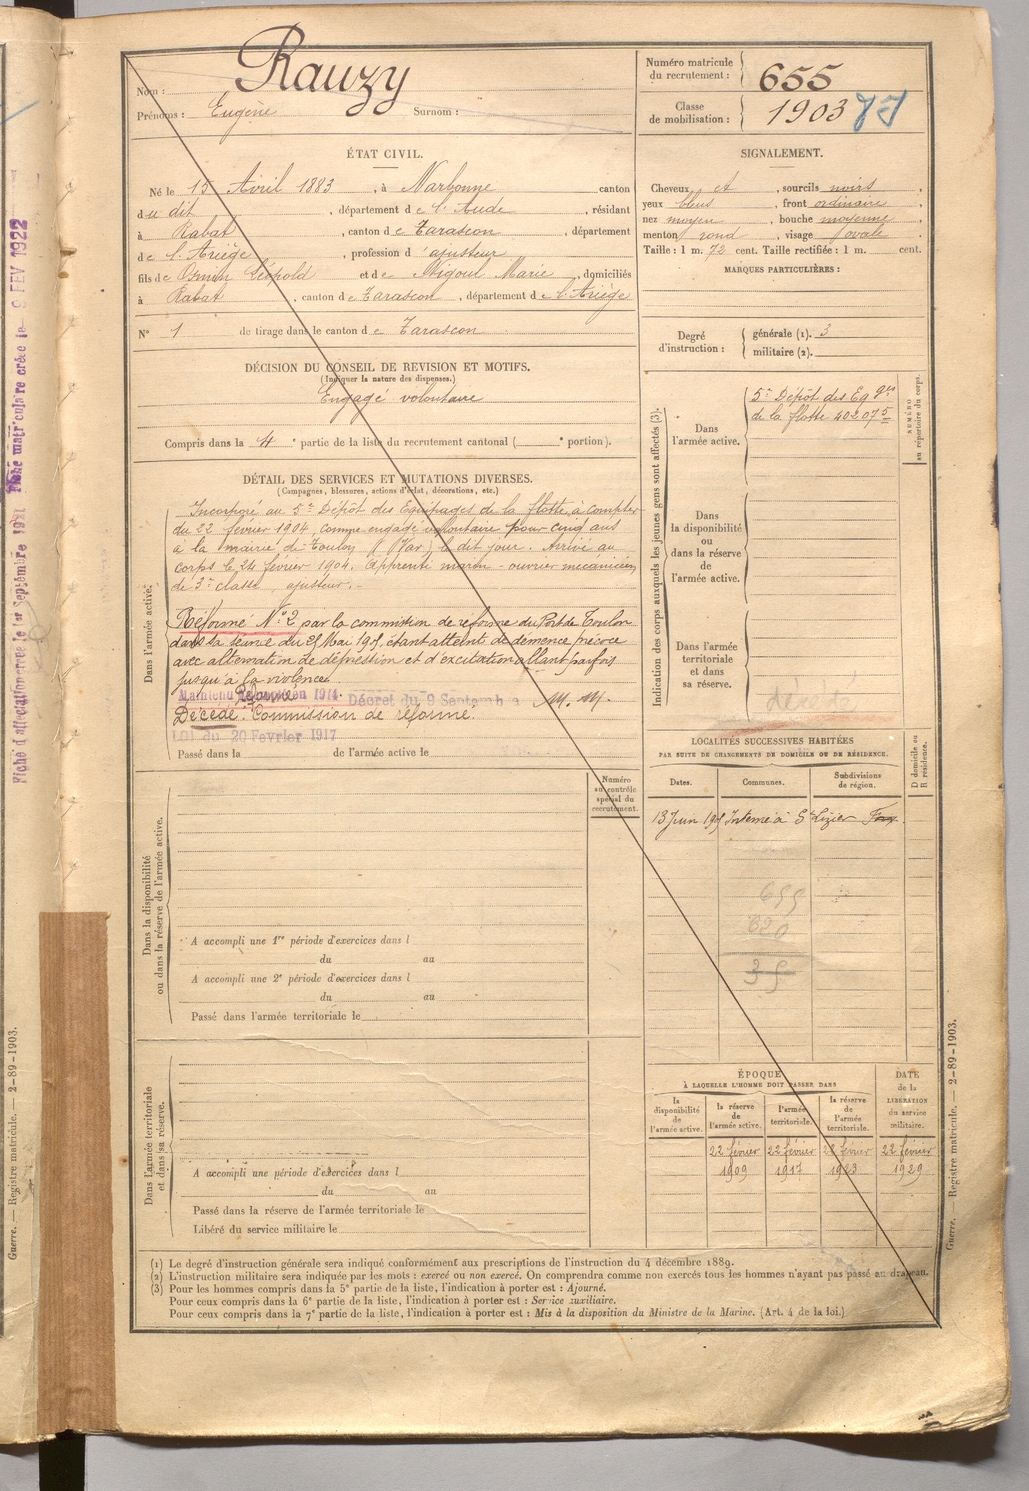 Nom : Rauzy
Prénoms : Eugène Surnom :
Numéro matricule du recrutement : 655
Classe de mobilisation : 1903
ÉTAT CIVIL.
Né le 15 Avril 1883, à Narbonne canton
du dit, département de l'Aude, résidant
à Rabat, canton de Tarascon, département
de l'Ariège, profession d'ajusteur
fils de Léopold et de Marie, domiciliés
à Rabat, canton de Tarascon, département de l'Ariège
N° 1 de tirage dans le canton de Tarascon
DÉCISION DU CONSEIL DE REVISION ET MOTIFS.
(Indiquer la nature des dispenses.)
Engagé volontaire
Compris dans la 4e partie de la liste du recrutement cantonal ( e portion).
DÉTAIL DES SERVICES ET MUTATIONS DIVERSES.
(Campagnes, blessures, actions d'éclat, décorations, etc.)
Dans l'armée active.
Incorporé au 5e Dépôt des Equipages de la flotte, à compter
du 22 février 1904, comme engagé volontaire pour cinq ans
à la mairie de Toulon (Var) le dit jour. Arrivé au
corps le 24 février 1904. Apprenti marin - ouvrier mécanicien
de 3e classe, ajusteur. -
Réformé N° 2 par la commission de réforme du Port de Toulon
dans sa séance du 25 Mai 1905, étant atteint de démence précoce
avec alternation de dépression et d'excitation allant parfois
jusqu'à la violence.
Maintenu Réformé en 1914. Décret du 9 Septembre
Décédé. Commission de réforme.
Loi du 20 Février 1917
Passé dans la de l'armée active le
Dans la disponibilité ou dans la réserve de l'armée active.
Numéro au contrôle spécial du recrutement.
A accompli une 1re période d'exercices dans l
du au
A accompli une 2e période d'exercices dans l
du au
Passé dans l'armée territoriale le
Dans l'armée territoriale et dans sa réserve.
A accompli une période d'exercices dans l
du au
Passé dans la réserve de l'armée territoriale le
Libéré du service militaire le
SIGNALEMENT.
Cheveux et, sourcils noirs,
yeux bleus, front ordinaire,
nez moyen, bouche moyenne,
menton rond, visage ovale.
Taille : 1 m. 72 cent. Taille rectifiée : 1 m. cent.
MARQUES PARTICULIÈRES :
Degré d'instruction : générale (1). 3
militaire (2).
Indication des corps auxquels les jeunes gens sont affectés (3).
NUMÉRO au répertoire du corps.
Dans l'armée active.
5e Dépôt des Eqges
de la flotte 40207 5
Dans la disponibilité ou dans la réserve de l'armée active.
Dans l'armée territoriale et dans sa réserve.
décédé
LOCALITÉS SUCCESSIVES HABITÉES
PAR SUITE DE CHANGEMENTS DE DOMICILE OU DE RÉSIDENCE.
D domicile ou R résidence.
Dates. Communes. Subdivisions de région.
13 Juin 1905 Interné à St Lizier Foix
655
620
35
ÉPOQUE
À LAQUELLE L'HOMME DOIT PASSER DANS
DATE de la LIBÉRATION du service militaire.
la disponibilité de l'armée active.
la réserve de l'armée active.
l'armée territoriale.
la réserve de l'armée territoriale.
22 février 22 février 22 février 22 février
1909 1917 1923 1929
(1) Le degré d'instruction générale sera indiqué conformément aux prescriptions de l'instruction du 4 décembre 1889.
(2) L'instruction militaire sera indiquée par les mots : exercé ou non exercé. On comprendra comme non exercés tous les hommes n'ayant pas passé au drapeau.
(3) Pour les hommes compris dans la 5e partie de la liste, l'indication à porter est : Ajourné.
Pour ceux compris dans la 6e partie de la liste, l'indication à porter est : Service auxiliaire.
Pour ceux compris dans la 7e partie de la liste, l'indication à porter est : Mis à la disposition du Ministre de la Marine. (Art. 4 de la loi.)
Guerre. — Registre matricule. — 2-89-1903.
Guerre. — Registre matricule. — 2-89-1903.
Fiche d'affectation créée le 1er Septembre 1921 Fiche matriculaire créée le 9 FEV 1922